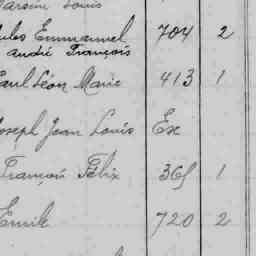 Louis
Jules Emmanuel 704 2
André François
Paul Léon Marie 413 1
Joseph Jean Louis Ex
François Félix 365 1
Emile 720 2